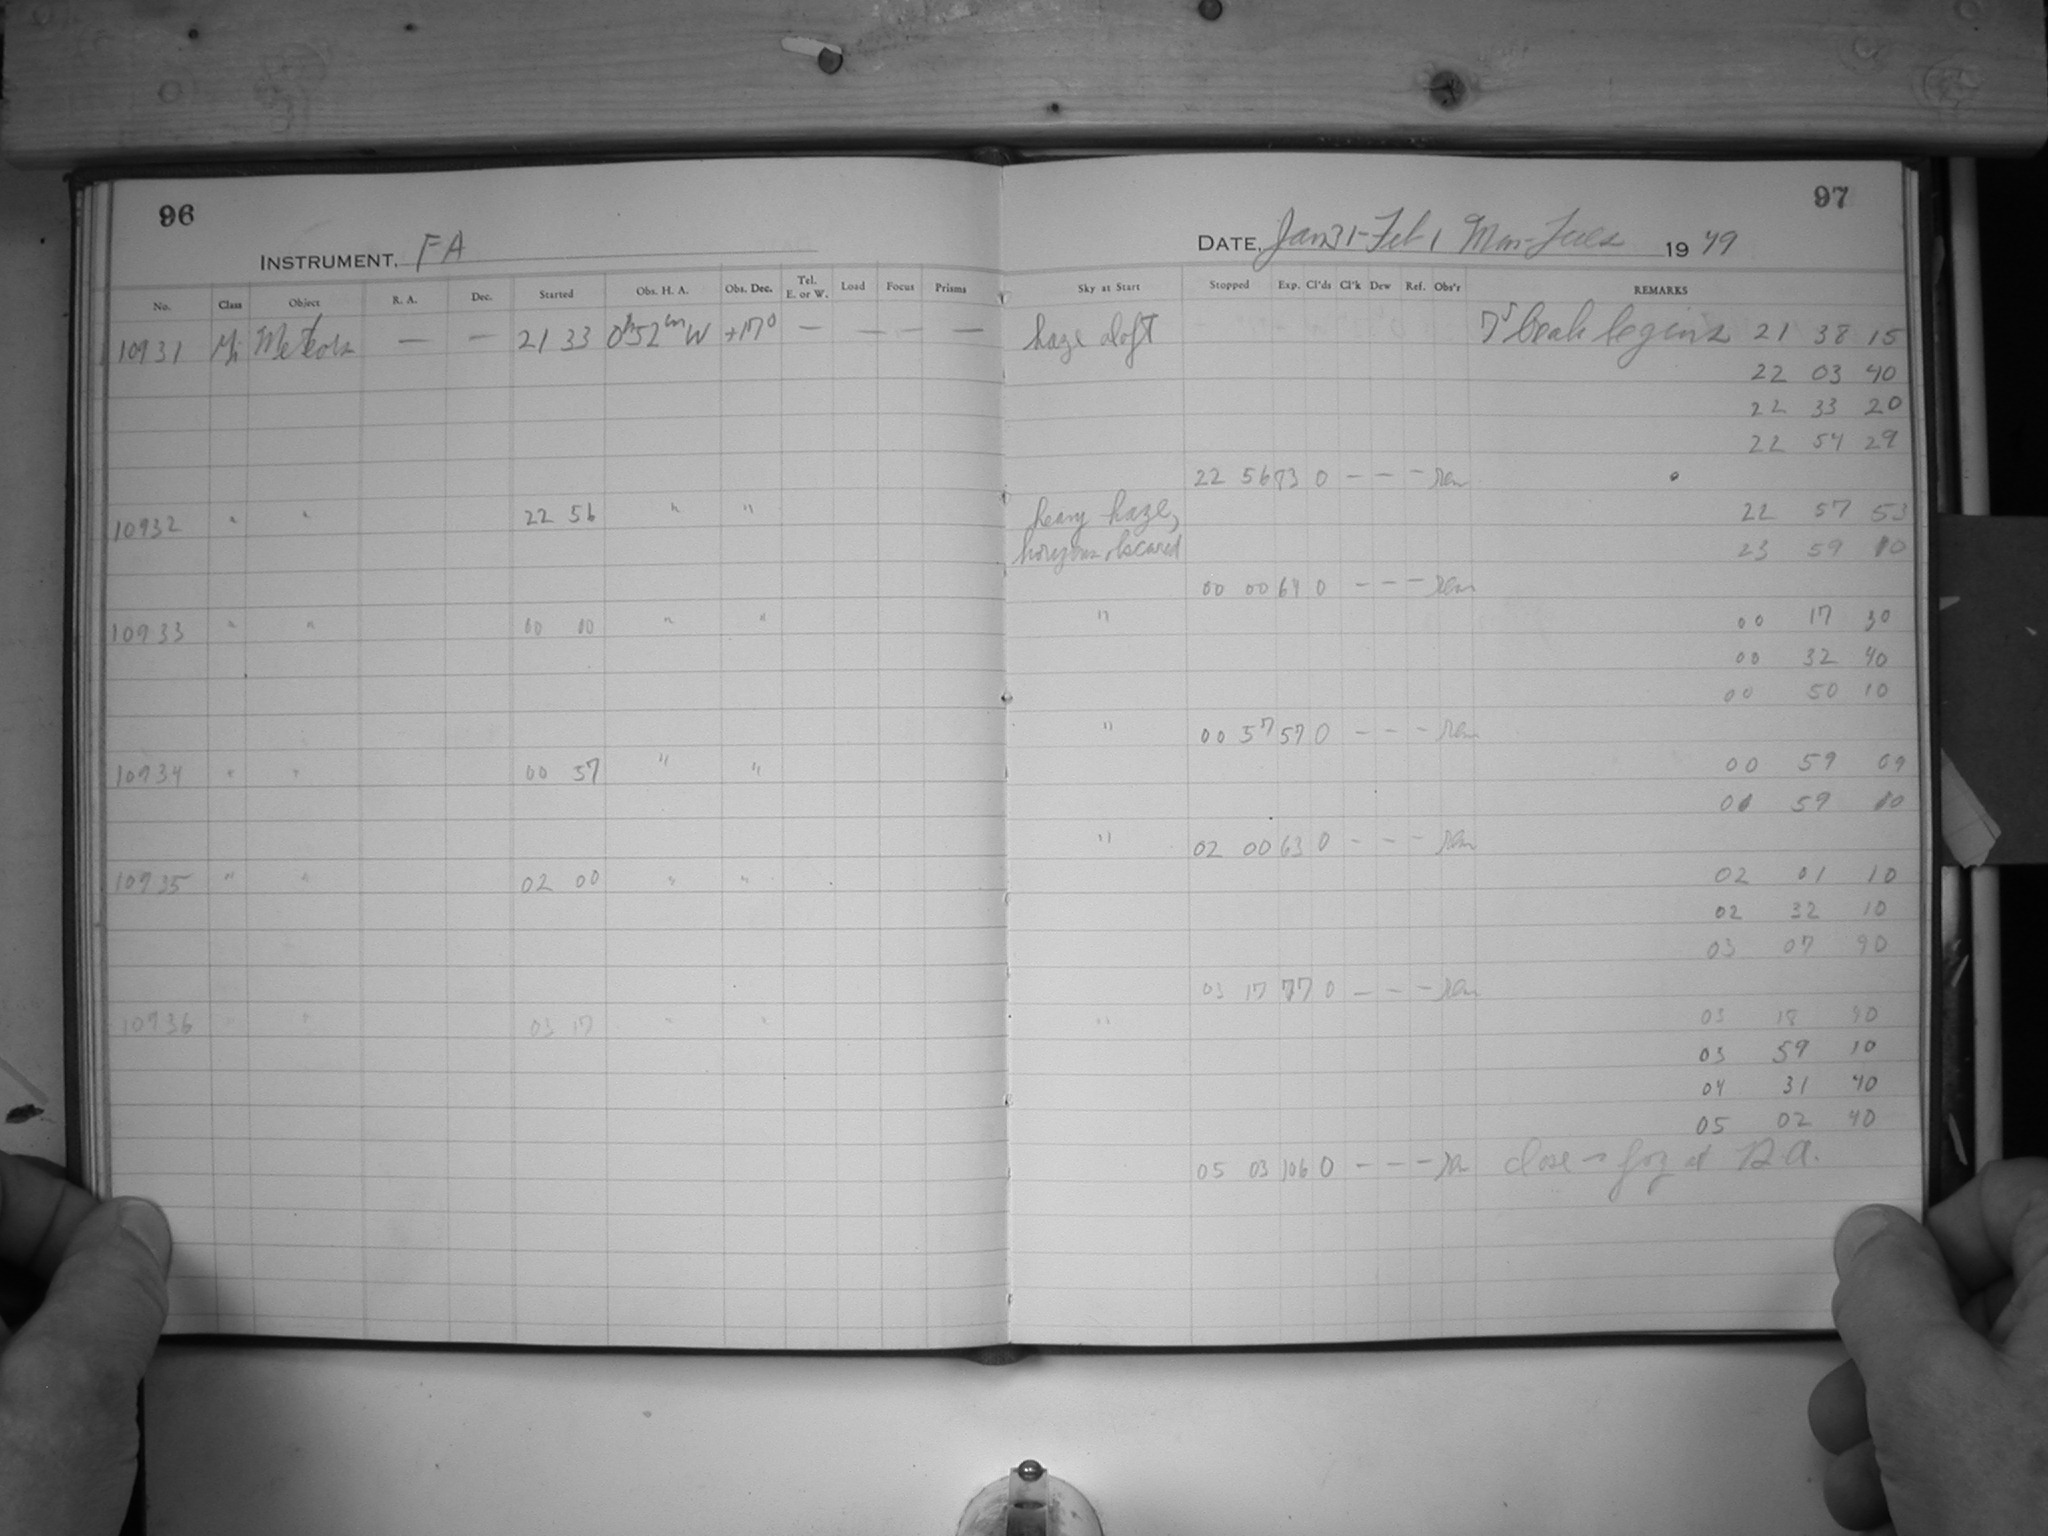 96
INSTRUMENT. FA
No. Class Object R. A. Dec. Started Obs. H. A. Obs. Dec. Tel. E. or W. Load Focus Prisms
10931 Mi Meteors — — 21 33 0h52mW +17° — — — —
10932 " " 22 56 " "
10933 " " 00 00 " "
10934 " " 00 57 " "
10935 " " 02 00 " "
10936 " " 03 17 " "
97
DATE. Jan 31-Feb 1 Mon-Tues 1949
Sky at Start Stopped Exp. Cl'ds Cl'k Dew Ref. Obs'r REMARKS
haze aloft break begins 21 38 15
22 03 40
22 33 20
22 54 29
22 56 83 0 - - -
heavy haze, 22 57 53
horizon obscured 23 59 10
00 00 64 0 - - -
" 00 17 30
00 32 40
00 50 10
" 00 57 57 0 - - -
00 59 09
01 59 10
" 02 00 63 0 - - -
02 01 10
02 32 10
03 07 40
03 17 77 0 - - -
" 03 18 40
03 59 10
04 31 40
05 02 40
05 03 106 0 - - - close - fog at